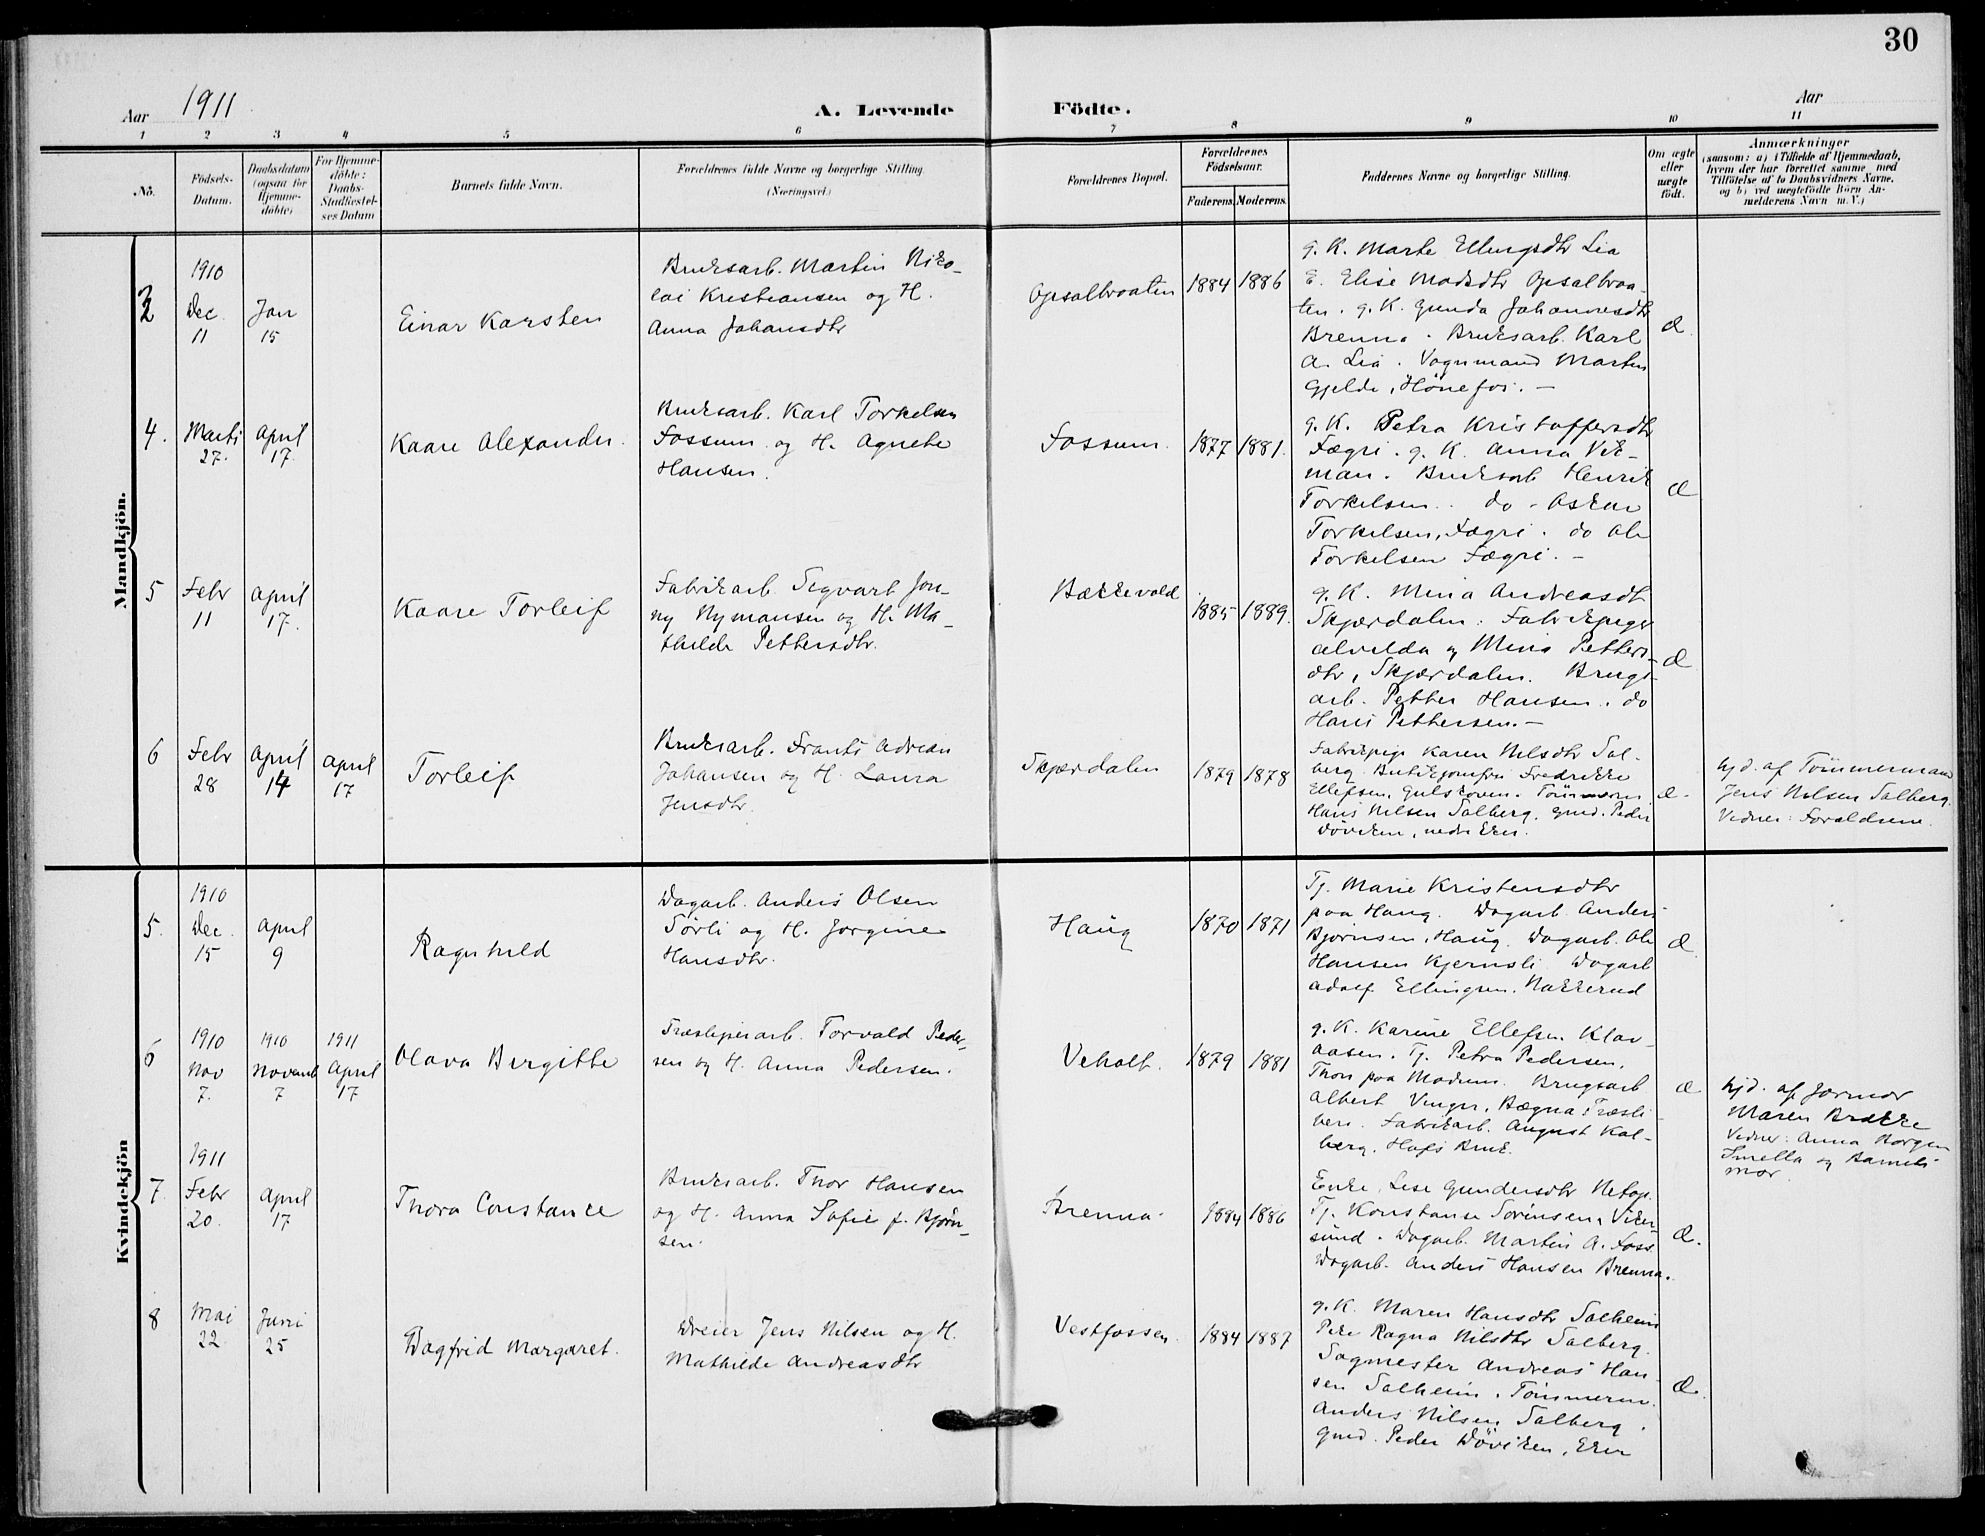 30
Aar 1911
A. Levende Födte.
Aar
1 2 3 4 5 6 7 8 9 10 11
No.
Födsels-
Datum.
Daabsdatum
(ogsaa for
Hjemme-
döbte)
For Hjemme-
döbte:
Daabs-
Stadfæstel-
ses Datum
Barnets fulde Navn.
Forældrenes fulde Navne og borgerlige Stilling.
(Næringsvei.)
Forældrenes Bopæl.
Forældrenes
Födselsaar.
Faderens. Moderens.
Faddernes Navne og borgerlige Stilling.
Om ægte
eller
uægte
födt.
Anmærkninger
(saasom: a) i Tilfælde af Hjemmedaab,
hvem der har forrettet samme, med
Tilföielse af to Daabsvidners Navne,
og b) ved uægtefödte Börn An-
melderens Navn m. V.)
Mandkjön.
3
1910
Dec
11
Jan
15
Einar Karsten
Bruksarb. Martin Niko-
lai Kristiansen og H.
Anna Johansdtr
Opsalbraaten
1884 1886
g. K. Marte Ellingsdtr Lia
E. Elise Madsdtr Opsalbraa-
ten. g. K. Gunda Johannesdtr
Brenna. Bruksarb. Karl
A. Lia. Vognmand Martin
Gjelde, Hönefos. –
Æ
4.
Marts
27.
April
17.
Kaare Alexander.
Bruksarb. Karl Torkelsen
Fossum og H. Agnethe
Hansen.
Fossum.
1877 1881.
g. K. Petra Kristoffersdtr
Fægri. g. K. Anna Vik-
man. Bruksarb Henrik
Torkelsen. do - Oskar
Torkelsen, Fægri. do Ole
Torkelsen Fægri. –
Æ
5
Febr
11
April
17.
Kaare Torleif
Fabrikarb. Sigvart Jon-
ny Nymansen og H. Ma-
thilde Pettersdtr.
Bækkevold
1885 1889.
g. K. Mina Andreasdtr
Skjærdalen. Fabrikpiger
Alvilda og Mina Petters-
dtr, Skjærdalen. Brugs-
arb. Petter Hansen. do
Hans Pettersen. –
Æ
6
Febr
28
April
14
April
17
Torleif
Bruksarb. Frants Adrean
Johansen og H. Laura
Jensdtr.
Skjærdalen
1879 1878
Fabrikpige Karen Nilsdtr Sol-
berg. Butikjomfru Fredrikke
Ellefsen, Gulskoven. Tömmerm.
Hans Nilsen Solberg. Gmd. Peder
Döviken, nedre Eker.
Æ.
hjd. af Tömmermand
Jens Nilsen Solberg.
Vidner: Forældrene.
Kvindekjön
5.
1910
Dec.
15
April
9
Ragnhild
Dagarb. Anders Olsen
Sörli og H. Jørgine
Hansdtr.
Haug
1870 1871
Tj. Marie Kristensdtr
paa Haug. Dagarb. Anders
Bjørnsen, Haug. Dagarb. Ole
Hansen Kjernsli Dagarb
Adolf Ellingsen. Nakkerud
Æ
6
1910
Nov
7.
1910
Novemb
7
1911
April
17
Olava Bergitte
Træsliperiarb. Torvald Peder-
sen og H. Anna Pedersen.
Veholt.
1879 1881
g. K. Karine Ellefsen Klov-
aasen. Tj. Petra Pedersen,
Thon paa Modum. Brugsarb
Albert Vinger, Bægna Træsli-
peri. Fabrikarb. August Kol-
berg, Hofs Bruk.
Æ
hjd. af Jormor
Maren Brække
Vidner: Anna Borgen
Smella og Barnets
mor.
7.
1911
Febr
20.
April
17
Thora Constance
Bruksarb. Thor Hansen
og H. Anna Sofie f. Bjørn-
sen.
Brenna.
1884 1886
Enke Lise Gundersdtr
Tj. Konstanse Sörensen, Viker-
sund. Dagarb. Martin A. Foss
Dagarb. Anders Hansen Brenna.
Æ.
8
Mai
22.
Juni
25
Dagfrid Margaret.
Dreier Jens Nilsen og H.
Mathilde Andreasdtr
Vestfossen.
1884 1887
g. K. Maren Hansdtr Solheim
Pike Ragna Nilsdtr Solberg.
Sagmester Andreas Han-
sen Solheim. Tömmerm.
Anders Nilsen Solberg.
Gmd. Peder Döviken, Eker
Æ.